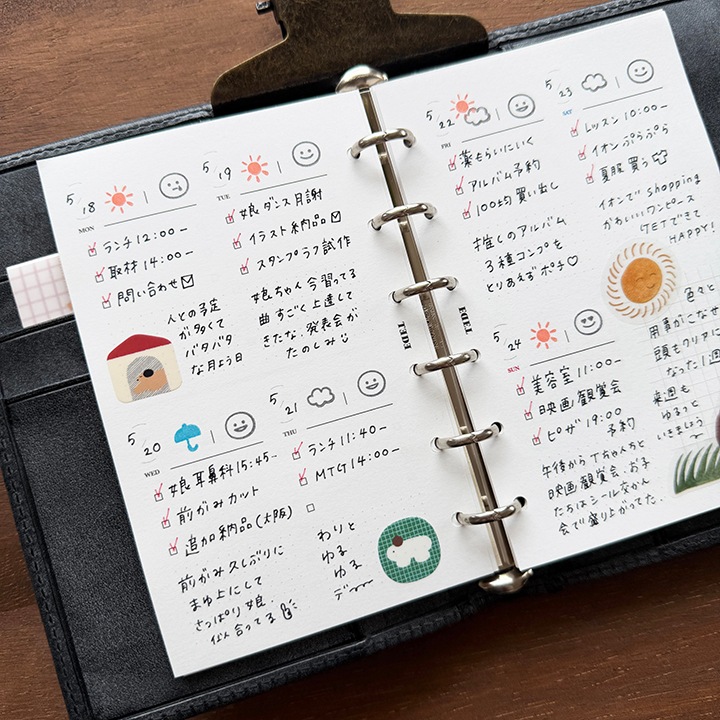 5/18
MON
ランチ 12:00-
取材 14:00-
問い合わせ
人との予定
が多くて
バタバタ
な月よう日
5/19
TUE
娘 ダンス 月謝
イラスト納品
スタンプラフ試作
娘ちゃん今習ってる
曲すごく上達して
きたな、発表会が
たのしみ
5/20
WED
娘 耳鼻科 15:45-
前がみカット
追加納品(大阪)
前がみ久しぶりに
まゆ上にして
さっぱり娘、
似合ってる
5/21
THU
ランチ 11:40-
MTG 14:00-
わりと
ゆる
ゆる
デー
5/22
FRI
薬もらいにいく
アルバム予約
100均買い出し
推しのアルバム
3種コンプも
とりあえずポチ♡
5/23
SAT
レッスン 10:00-
イオンぷらぷら
夏服買う
イオンで shopping
かわいいワンピース
GETできて
HAPPY!
5/24
SUN
美容室 11:00-
映画鑑賞会
ピザ 19:00
予約
午後からTちゃんと
映画鑑賞会、お子
たちはシール交かん
会で盛り上がってた.
色々と
用事がこなせ
頭もクリアに
なった1週
来週も
ゆるっと
いきましょう